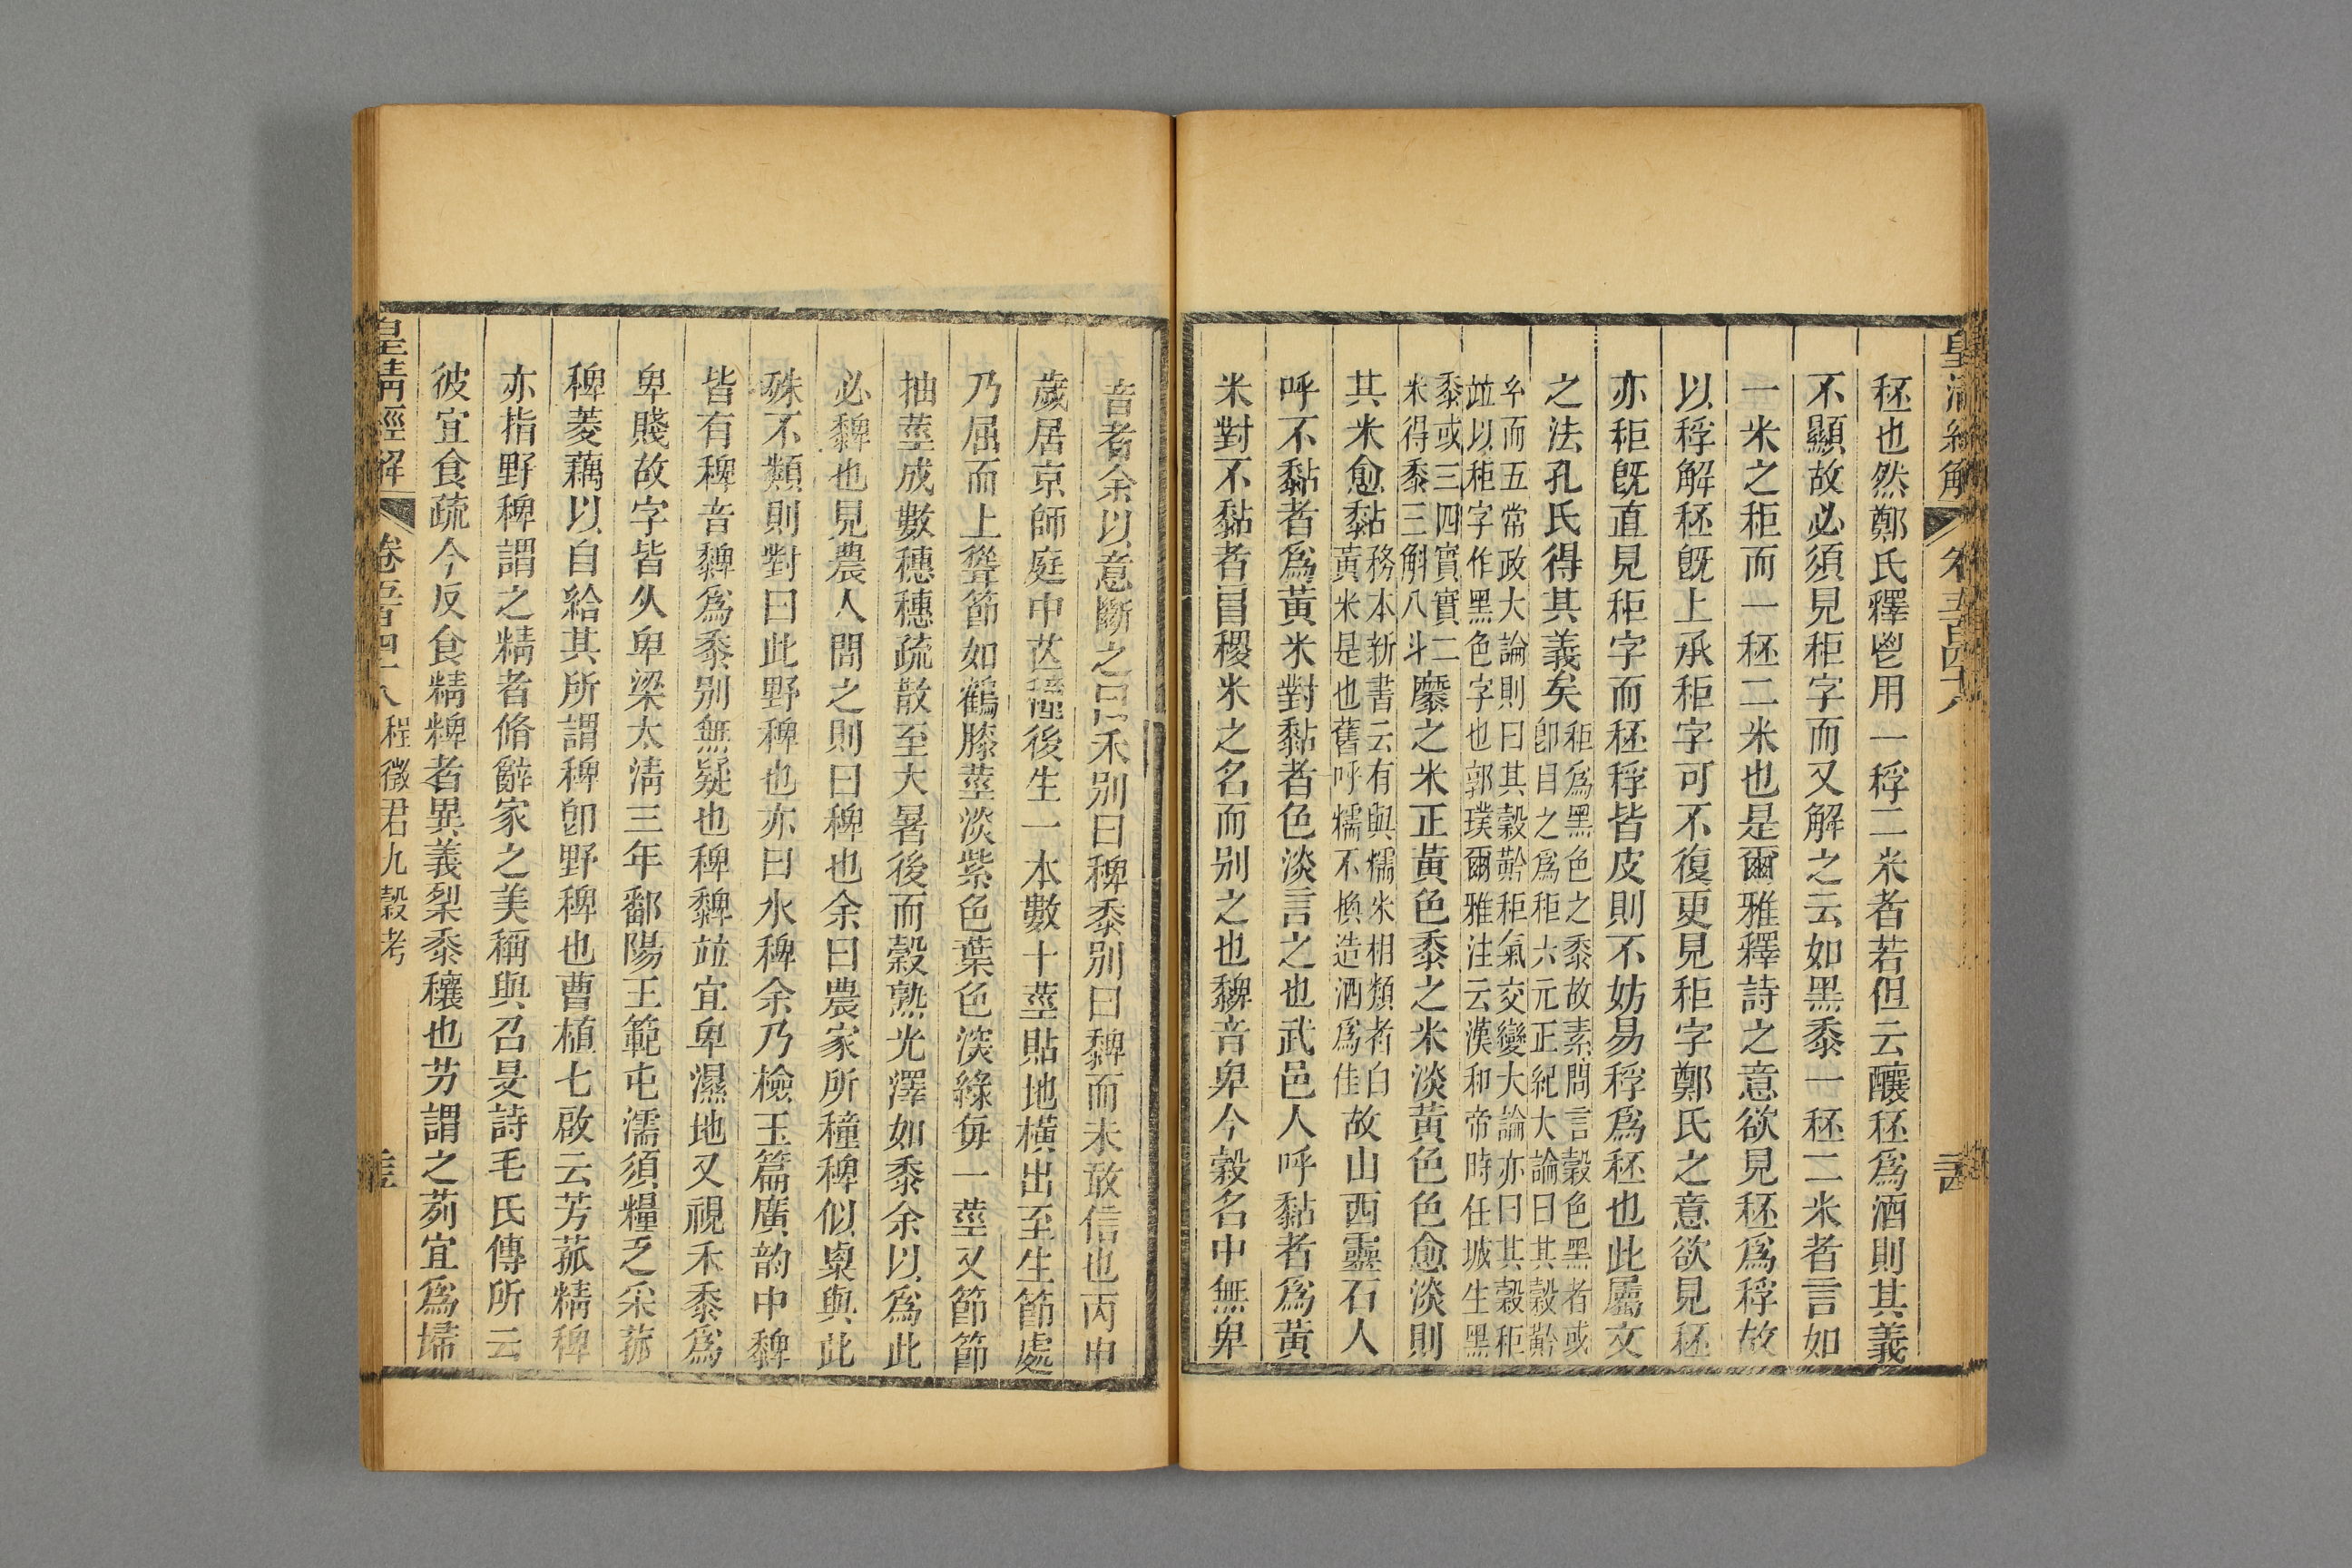 秠也然鄭氏釋鬯用一稃二米者若但云釀秠爲酒則其義
不顯故必須見秬字而又解之云如黑黍一秠二米者言如
一米之秬而一秠二米也是爾雅釋詩之意欲見秠爲稃故
以稃解秠旣上承秬字可不復更見秬字鄭氏之意欲見秠
亦秬旣直見秬字而秠稃皆皮則不妨易稃爲秠也此屬文
之法孔氏得其義矣秬爲黑色之黍故素問言穀色黑者或卽目之爲秬六元正紀大論曰其穀黅
秬而五常政大論則曰其穀黅秬氣交變大論亦曰其穀秬竝以秬字作黑色字也郭璞爾雅注云漢和帝時任城生黑
黍或三四實實二米得黍三斛八斗䵚之米正黃色黍之米淡黃色色愈淡則
其米愈黏務本新書云有與糯米相類者白黃米是也舊呼糯不換造酒爲佳故山西靈石人
呼不黏者爲黃米對黏者色淡言之也武邑人呼黏者爲黃
米對不黏者冒稷米之名而別之也䵗音卑今穀名中無卑
音者余以意斷之曰禾別曰稗黍別曰䵗而未敢信也丙申
歲居京師庭中芟穢後生一本數十莖貼地橫出至生節處
乃屈而上聳節如鶴膝莖淡紫色葉色淡綠每一莖又節節
抽莖成數穗穗疏散至大暑後而穀熟光澤如黍余以爲此
必䵗也見農人問之則曰稗也余曰農家所種稗似粟與此
殊不類則對曰此野稗也亦曰水稗余乃檢玉篇廣韵中稗
皆有稗音䵗爲黍別無疑也稗䵗竝宜卑濕地又視禾黍爲
卑賤故字皆从卑梁太清三年鄱陽王範屯濡須糧乏采菰
稗菱藕以自給其所謂稗卽野稗也曹植七啟云芳菰精稗
亦指野稗謂之精者脩辭家之美稱與召旻詩毛氏傳所云
彼宜食疏今反食精粺者異義䅀黍穰也芀謂之茢宜爲埽
皇清經解 卷五百四十八 程徵君九穀考